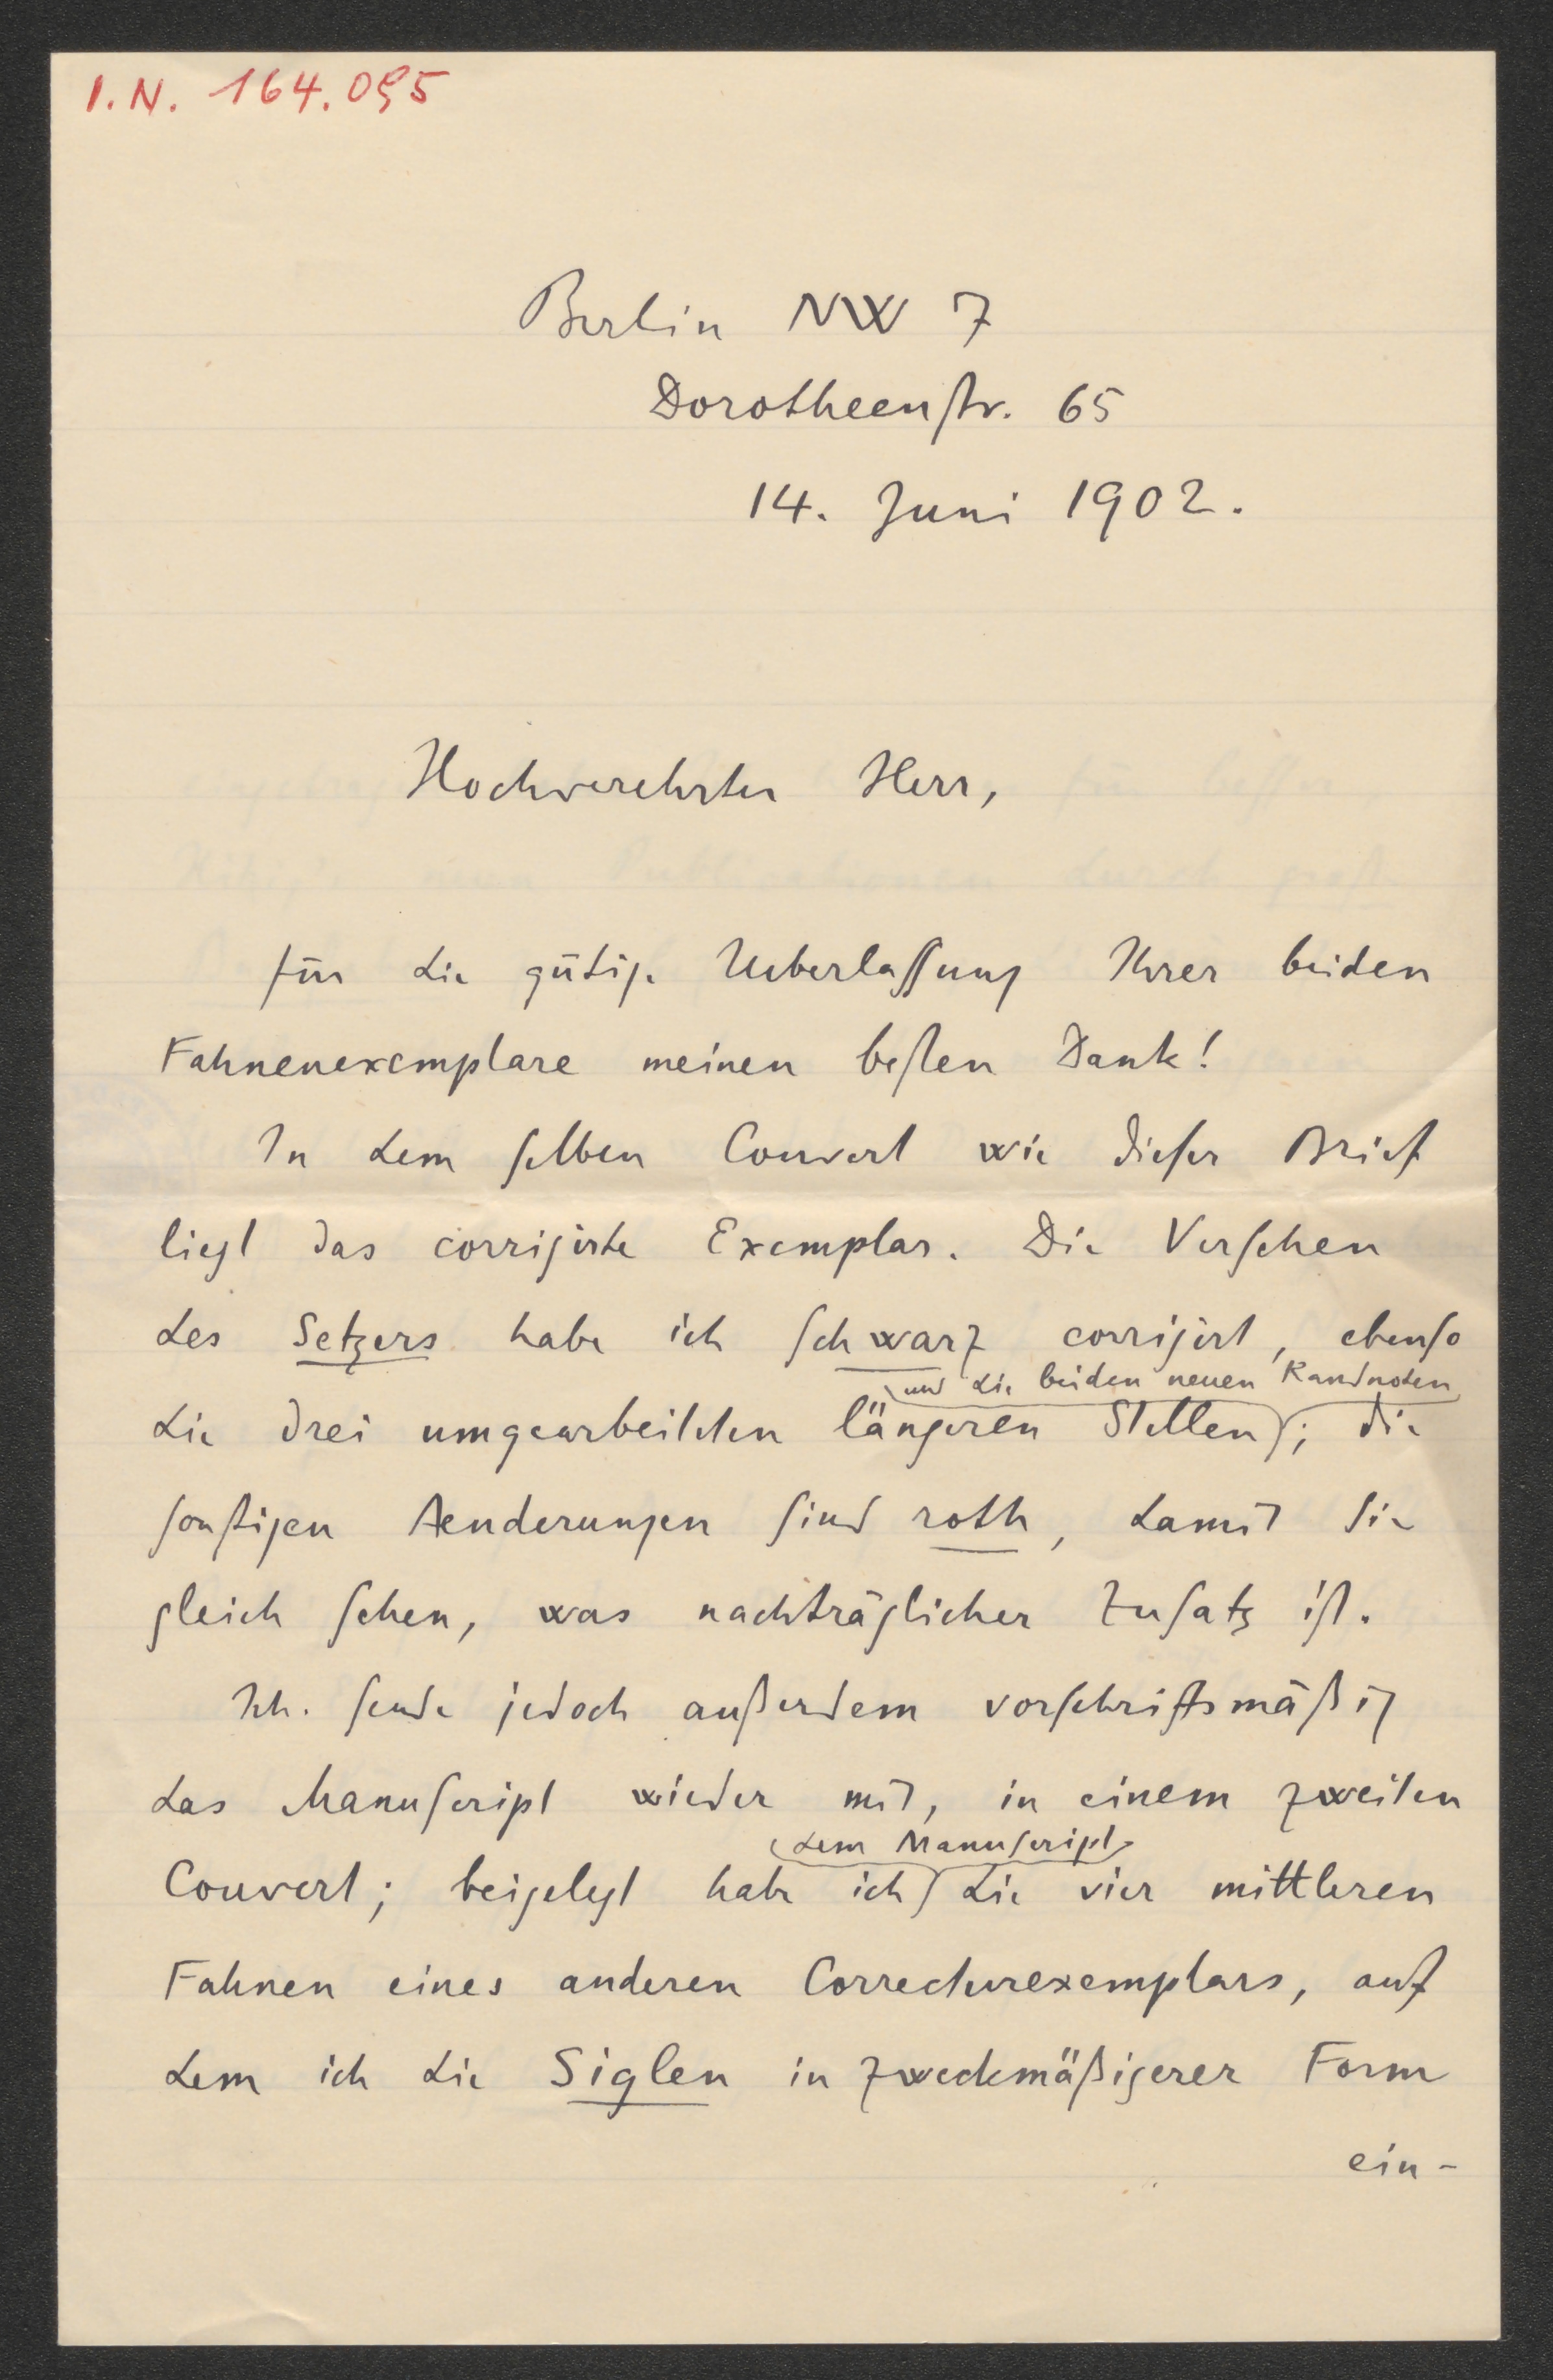 I.N. 164.095
Berlin NW 7
Dorotheenstr. 65
14. Juni 1902.
Hochverehrter Herr,
für die gütige Ueberlassung Ihrer beiden
Fahnenexemplare meinen besten Dank!
In dem selben Couvert wie dieser Brief
liegt das corrigirte Exemplar. Die Versehen
des Setzers habe ich schwarz corrigirt, ebenso
und die beiden neuen Randnoten
die drei umgearbeiteten längeren Stellen; die
sonstigen Aenderungen sind roth, damit Sie
gleich sehen, was nachträglicher Zusatz ist.
Ich sende jedoch außerdem vorschriftsmäßig
das Manuscript wieder mit, in einem zweiten
dem Manuscript
Couvert; beigelegt habe ich die vier mittleren
Fahnen eines anderen Correcturexemplars, auf
dem ich die Siglen in zweckmäßigerer Form
ein-